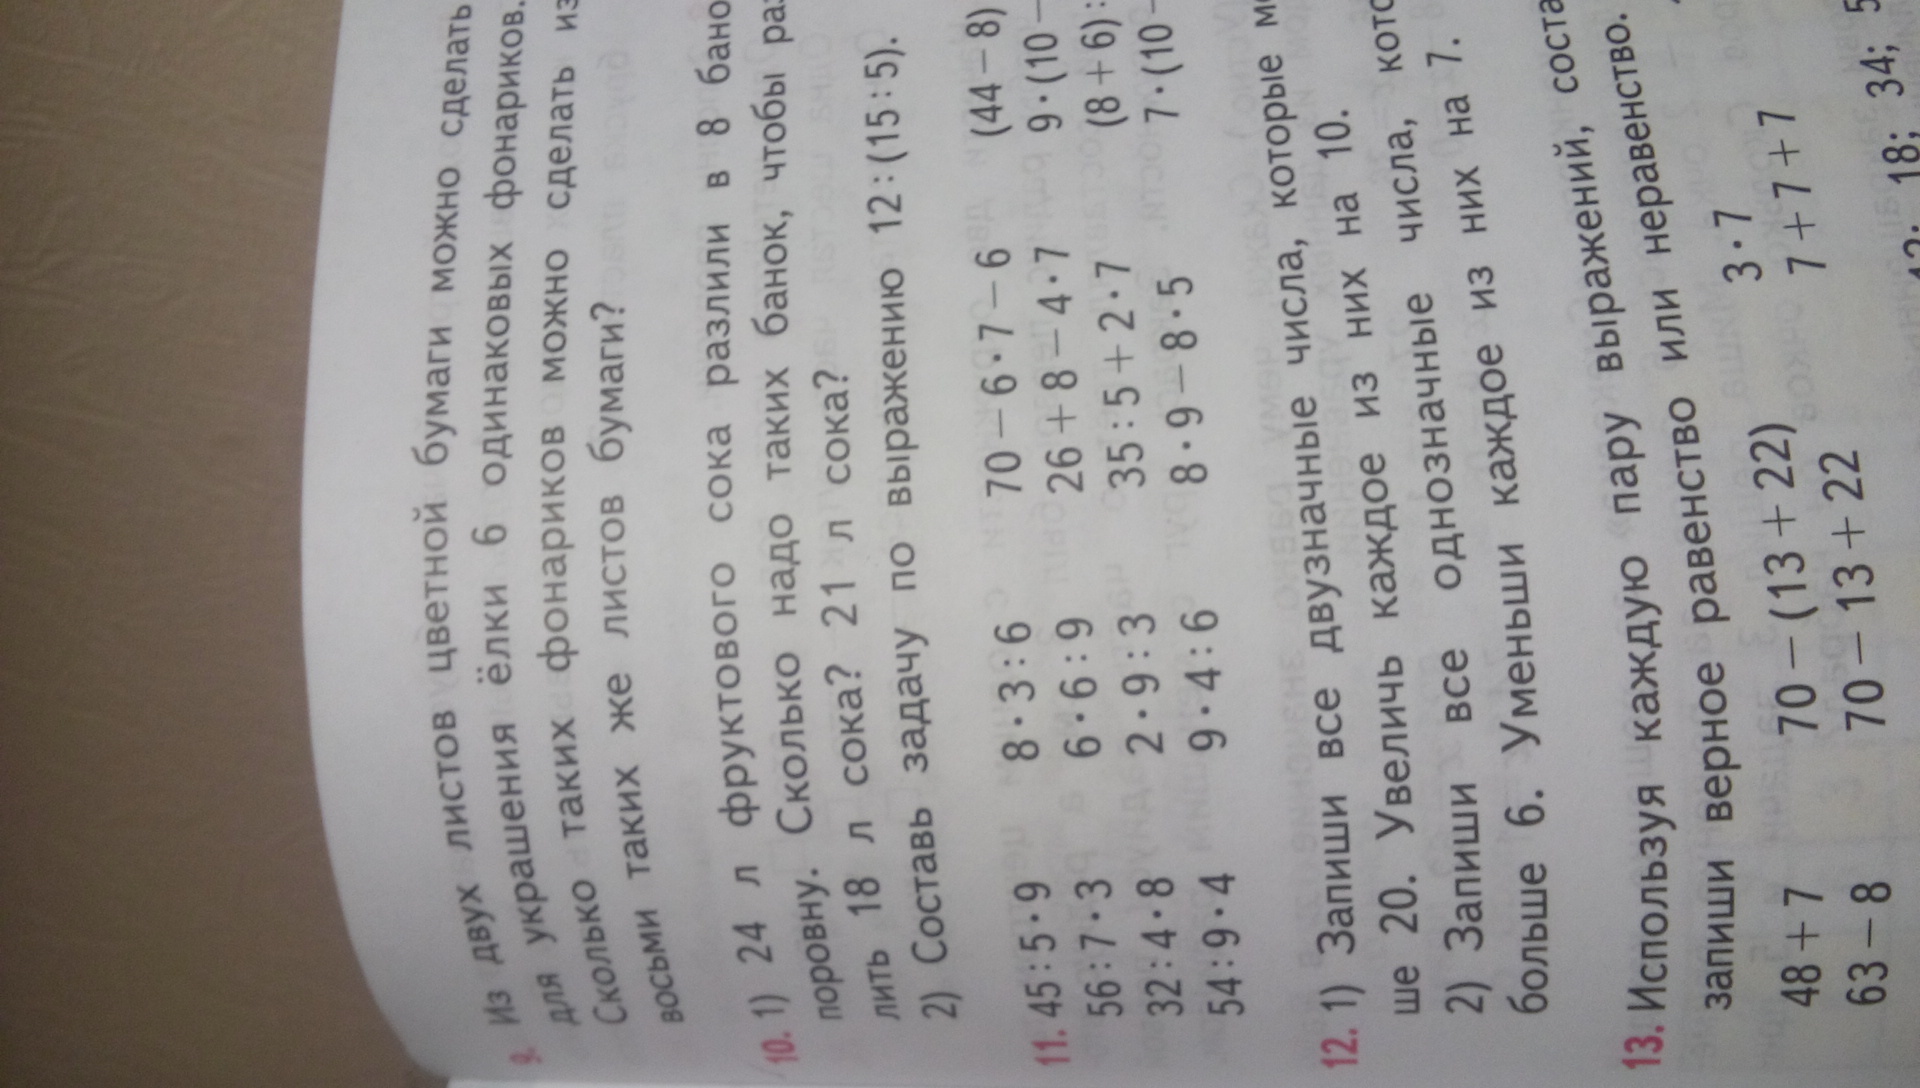 9. Из двух листов цветной бумаги можно сделать
для украшения ёлки 6 одинаковых фонариков.
Сколько таких фонариков можно сделать из
восьми таких же листов бумаги?
10. 1) 24 л фруктового сока разлили в 8 бано
поровну. Сколько надо таких банок, чтобы раз
лить 18 л сока? 21 л сока?
2) Составь задачу по выражению 12 : (15 : 5).
11. 45 : 5 · 9 8 · 3 : 6 70 − 6 · 7 − 6 (44 − 8)
56 : 7 · 3 6 · 6 : 9 26 + 8 − 4 · 7 9 · (10 −
32 : 4 · 8 2 · 9 : 3 35 : 5 + 2 · 7 (8 + 6) :
54 : 9 · 4 9 · 4 : 6 8 · 9 − 8 · 5 7 · (10 −
12. 1) Запиши все двузначные числа, которые м
ше 20. Увеличь каждое из них на 10.
2) Запиши все однозначные числа, кото
больше 6. Уменьши каждое из них на 7.
13. Используя каждую пару выражений, соста
запиши верное равенство или неравенство.
48 + 7 70 − (13 + 22) 3 · 7
63 − 8 70 − 13 + 22 7 + 7 + 7
18; 34; 5